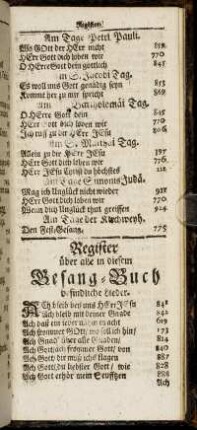 Register.
Am Tage Petri Pauli.
Wo GOtt der HErr nicht 812
HErr Gott dich loben wir 770
O HErre Gott dein göttlich 845
in S. Jacobi Tag.
Es woll uns Gott genädig seyn
Kommt her zu mir spricht 868
am Bartholomäi Tag.
O HErre Gott dein 845
HErr Gott dich loben wir 770
Ich ruff zu dir HErr JEsu 806
am S. Matthäi Tag.
Allein zu dir HErr JEsu 797
HErr Gott dich loben wir 776
Herr JEsu Christ du höchstes 118
am Tage Simonis Judä.
Mag ich Unglück nicht wieder 922
HErr Gott dich loben wir 770
Wenn dich Unglück thut greiffen 924
Am Tage der Kirchweyh.
Den Fest-Gesang. 775
Register
über alle in diesem
Gesang-Buch
befindliche Lieder.
ACh bleib bey uns HErr JEsu 842
Ach bleib mit deiner Gnade 842
Ach daß ein jeder nähm in acht
Ach frommer GOtt, wo soll ich hin/ 173
Ach Gnad' über alle Gnaden/ 814
Ach Gott/ach frommer Gott/ von 840
Ach Gott dir muß ichs klagen 887
Ach Gott/du liebster Gott/ wie 828
Ach Gott erhör mein Seufftzen 882
Ach